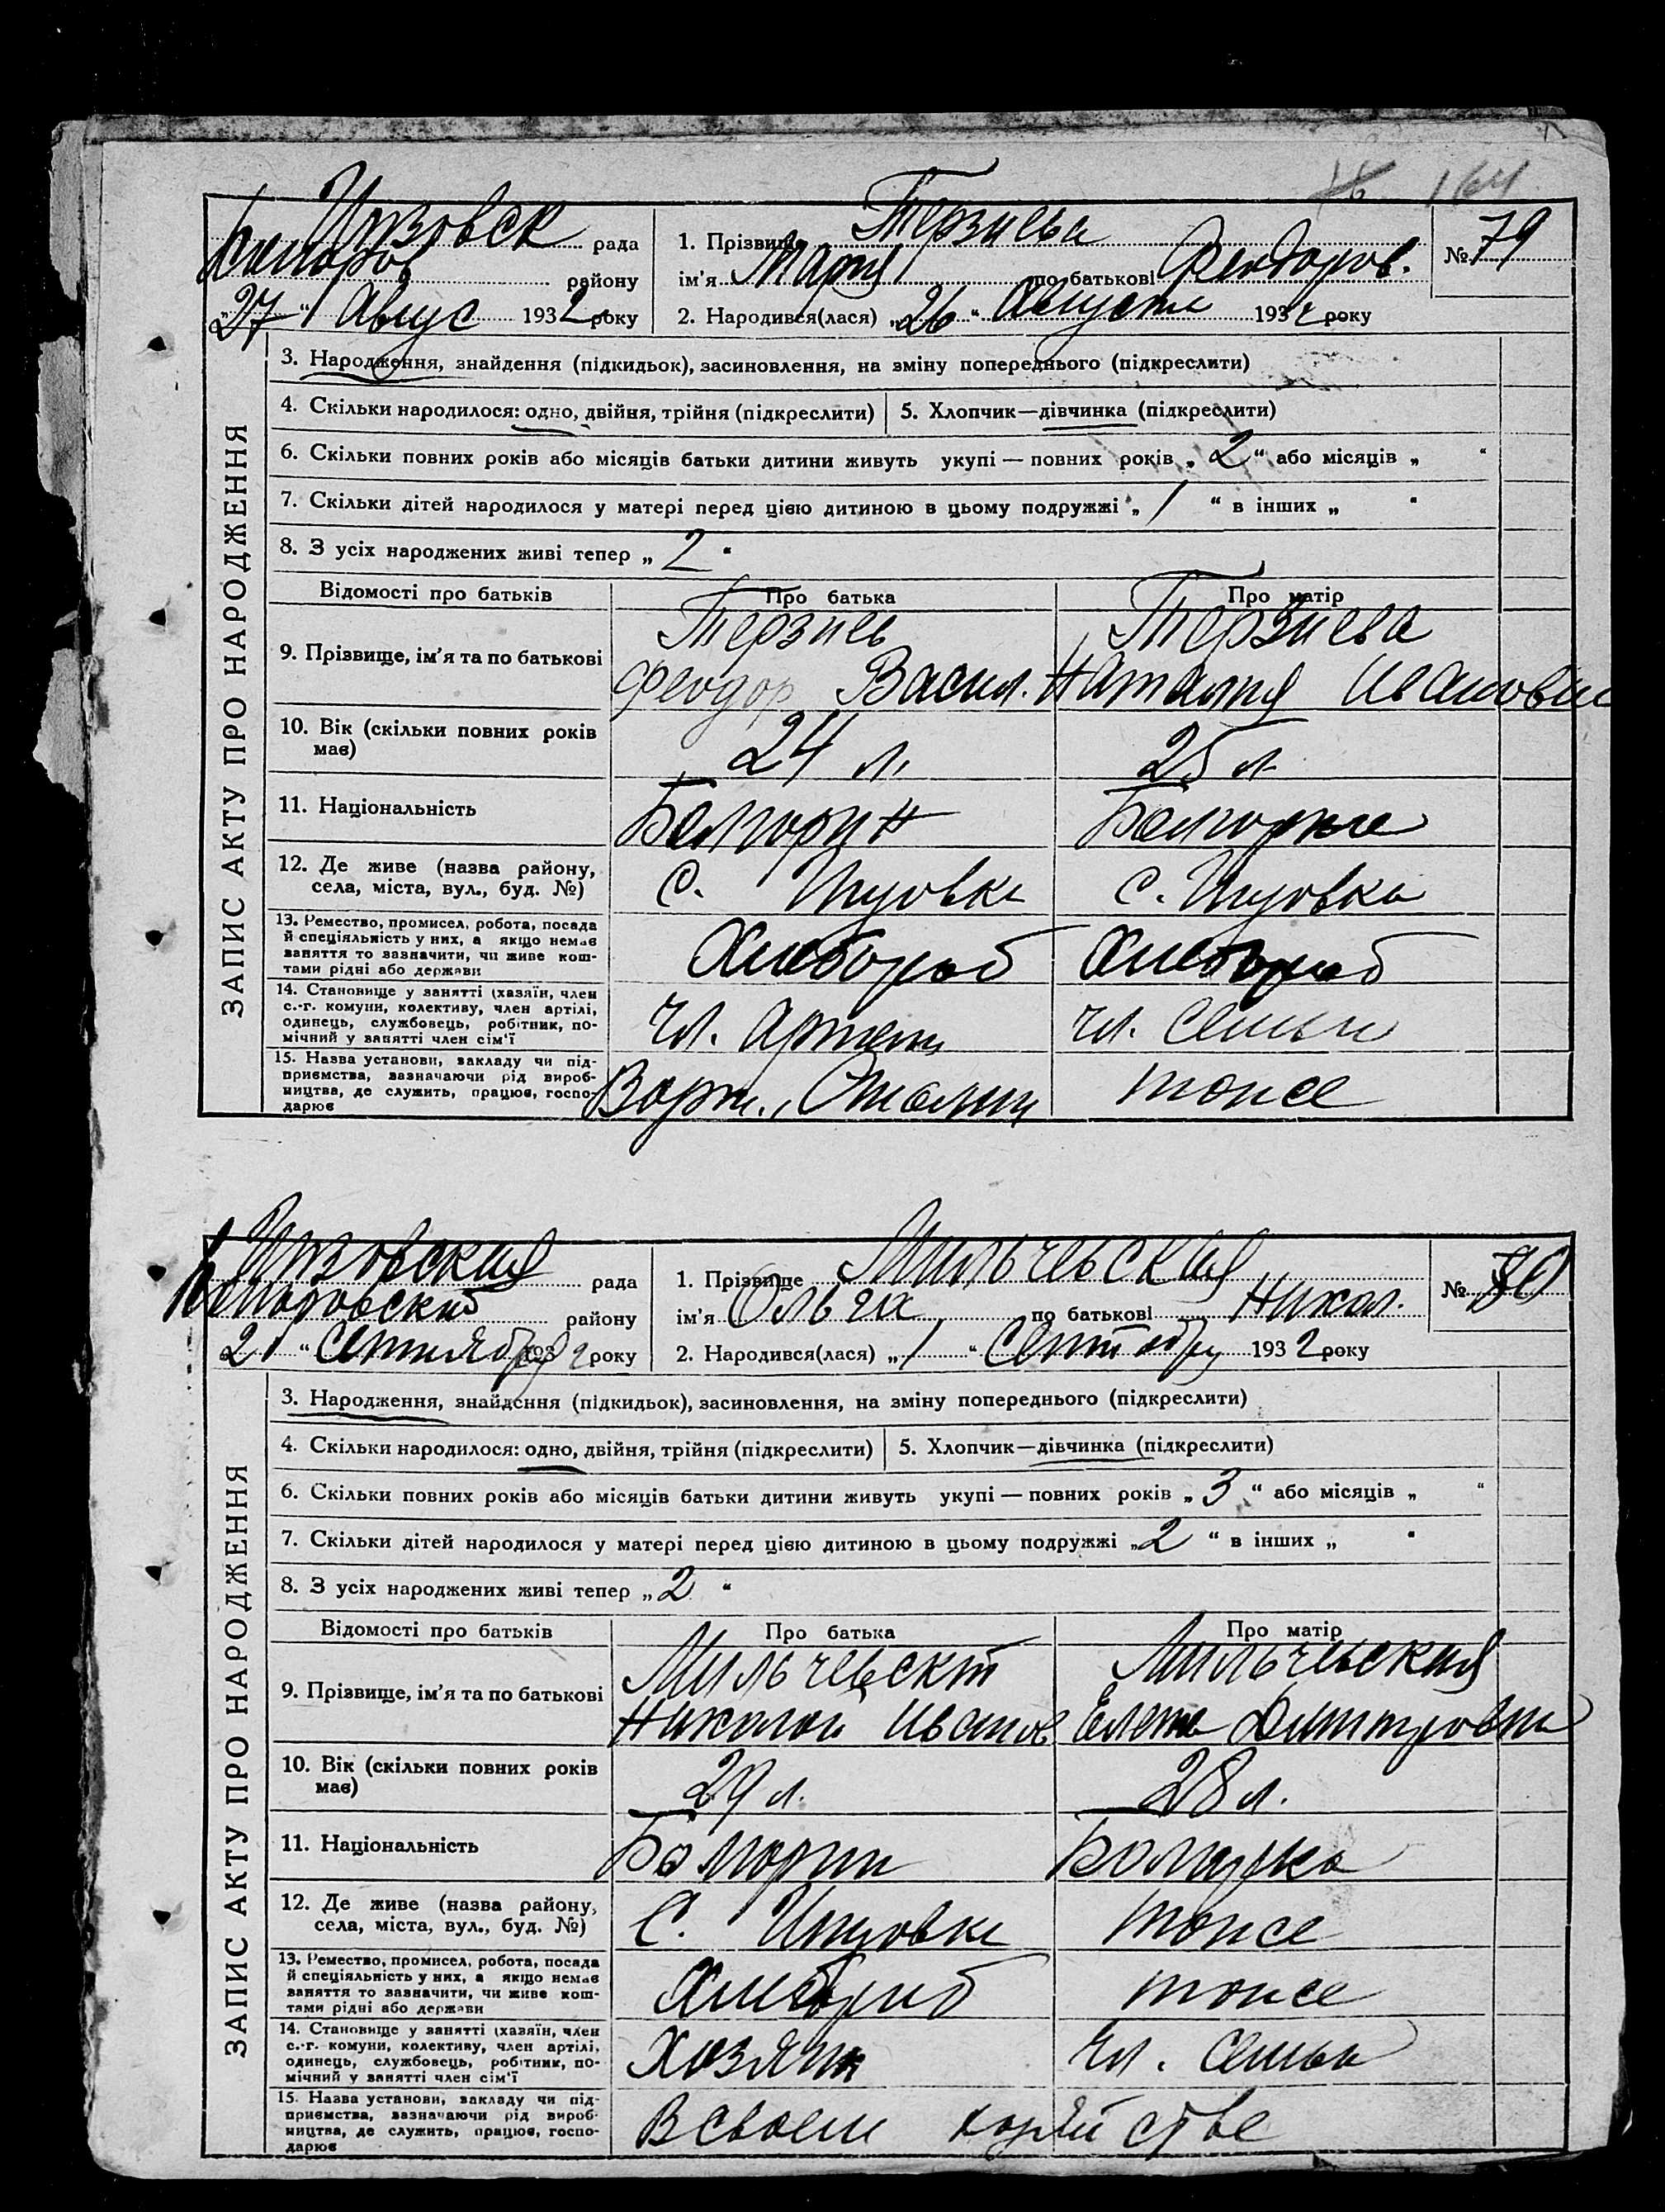 164
рада
району
27 Авгус 1932 року
1. Прізвище Терзиева
ім'я Мария по батькові Феодоров.
2. Народився(лася) „26" Августа 1932 року
№ 79
ЗАПИС АКТУ ПРО НАРОДЖЕННЯ
3. Народження, знайдення (підкидьок), засиновлення, на зміну попереднього (підкреслити)
4. Скільки народилося: одно, двійня, трійня (підкреслити)
5. Хлопчик—дівчинка (підкреслити)
6. Скільки повних років або місяців батьки дитини живуть укупі — повних років „2" або місяців „ "
7. Скільки дітей народилося у матері перед цією дитиною в цьому подружжі „1" в інших „ "
8. З усіх народжених живі тепер „2"
Відомості про батьків
Про батька
Про матір
9. Прізвище, ім'я та по батькові
Терзиев
Феодор Васил.
Терзиева
Наталия Ивановна
10. Вік (скільки повних років
має)
24 л.
25 л.
11. Національність
Болгарин
Болгарка
12. Де живе (назва району,
села, міста, вул., буд. №)
С.
С.
13. Ремество, промисел, робота, посада
й спеціяльність у них, а якщо немає
заняття то зазначити, чи живе кош-
тами рідні або держави
Хлебороб
Хлебороб
14. Становище у занятті (хазяїн, член
с.-г. комуни, колективу, член артілі,
одинець, службовець, робітник, по-
мічний у занятті член сім'ї
Чл. Артели
Чл. Семьи
15. Назва установи, закладу чи під-
приємства, зазначаючи рід вироб-
ництва, де служить, працює, госпо-
дарює
тоже
рада
району
2 " Сентября 1932 року
1. Прізвище Мильчевская
ім'я Ольга по батькові Никол.
2. Народився(лася) „1" Сентября 1932 року
№ 80
ЗАПИС АКТУ ПРО НАРОДЖЕННЯ
3. Народження, знайдення (підкидьок), засиновлення, на зміну попереднього (підкреслити)
4. Скільки народилося: одно, двійня, трійня (підкреслити)
5. Хлопчик—дівчинка (підкреслити)
6. Скільки повних років або місяців батьки дитини живуть укупі — повних років „3" або місяців „ "
7. Скільки дітей народилося у матері перед цією дитиною в цьому подружжі „2" в інших „ "
8. З усіх народжених живі тепер „2"
Відомості про батьків
Про батька
Про матір
9. Прізвище, ім'я та по батькові
Мильчевский
Николай Иванов
Мильчевская
Елена Дмитровна
10. Вік (скільки повних років
має)
29 л.
28 л.
11. Національність
Болгарин
Болгарка
12. Де живе (назва району,
села, міста, вул., буд. №)
С.
тоже
13. Ремество, промисел, робота, посада
й спеціяльність у них, а якщо немає
заняття то зазначити, чи живе кош-
тами рідні або держави
Хлебороб
тоже
14. Становище у занятті (хазяїн, член
с.-г. комуни, колективу, член артілі,
одинець, службовець, робітник, по-
мічний у занятті член сім'ї
Хозяин
Чл. Семьи
15. Назва установи, закладу чи під-
приємства, зазначаючи рід вироб-
ництва, де служить, працює, госпо-
дарює
В своем хозяйстве